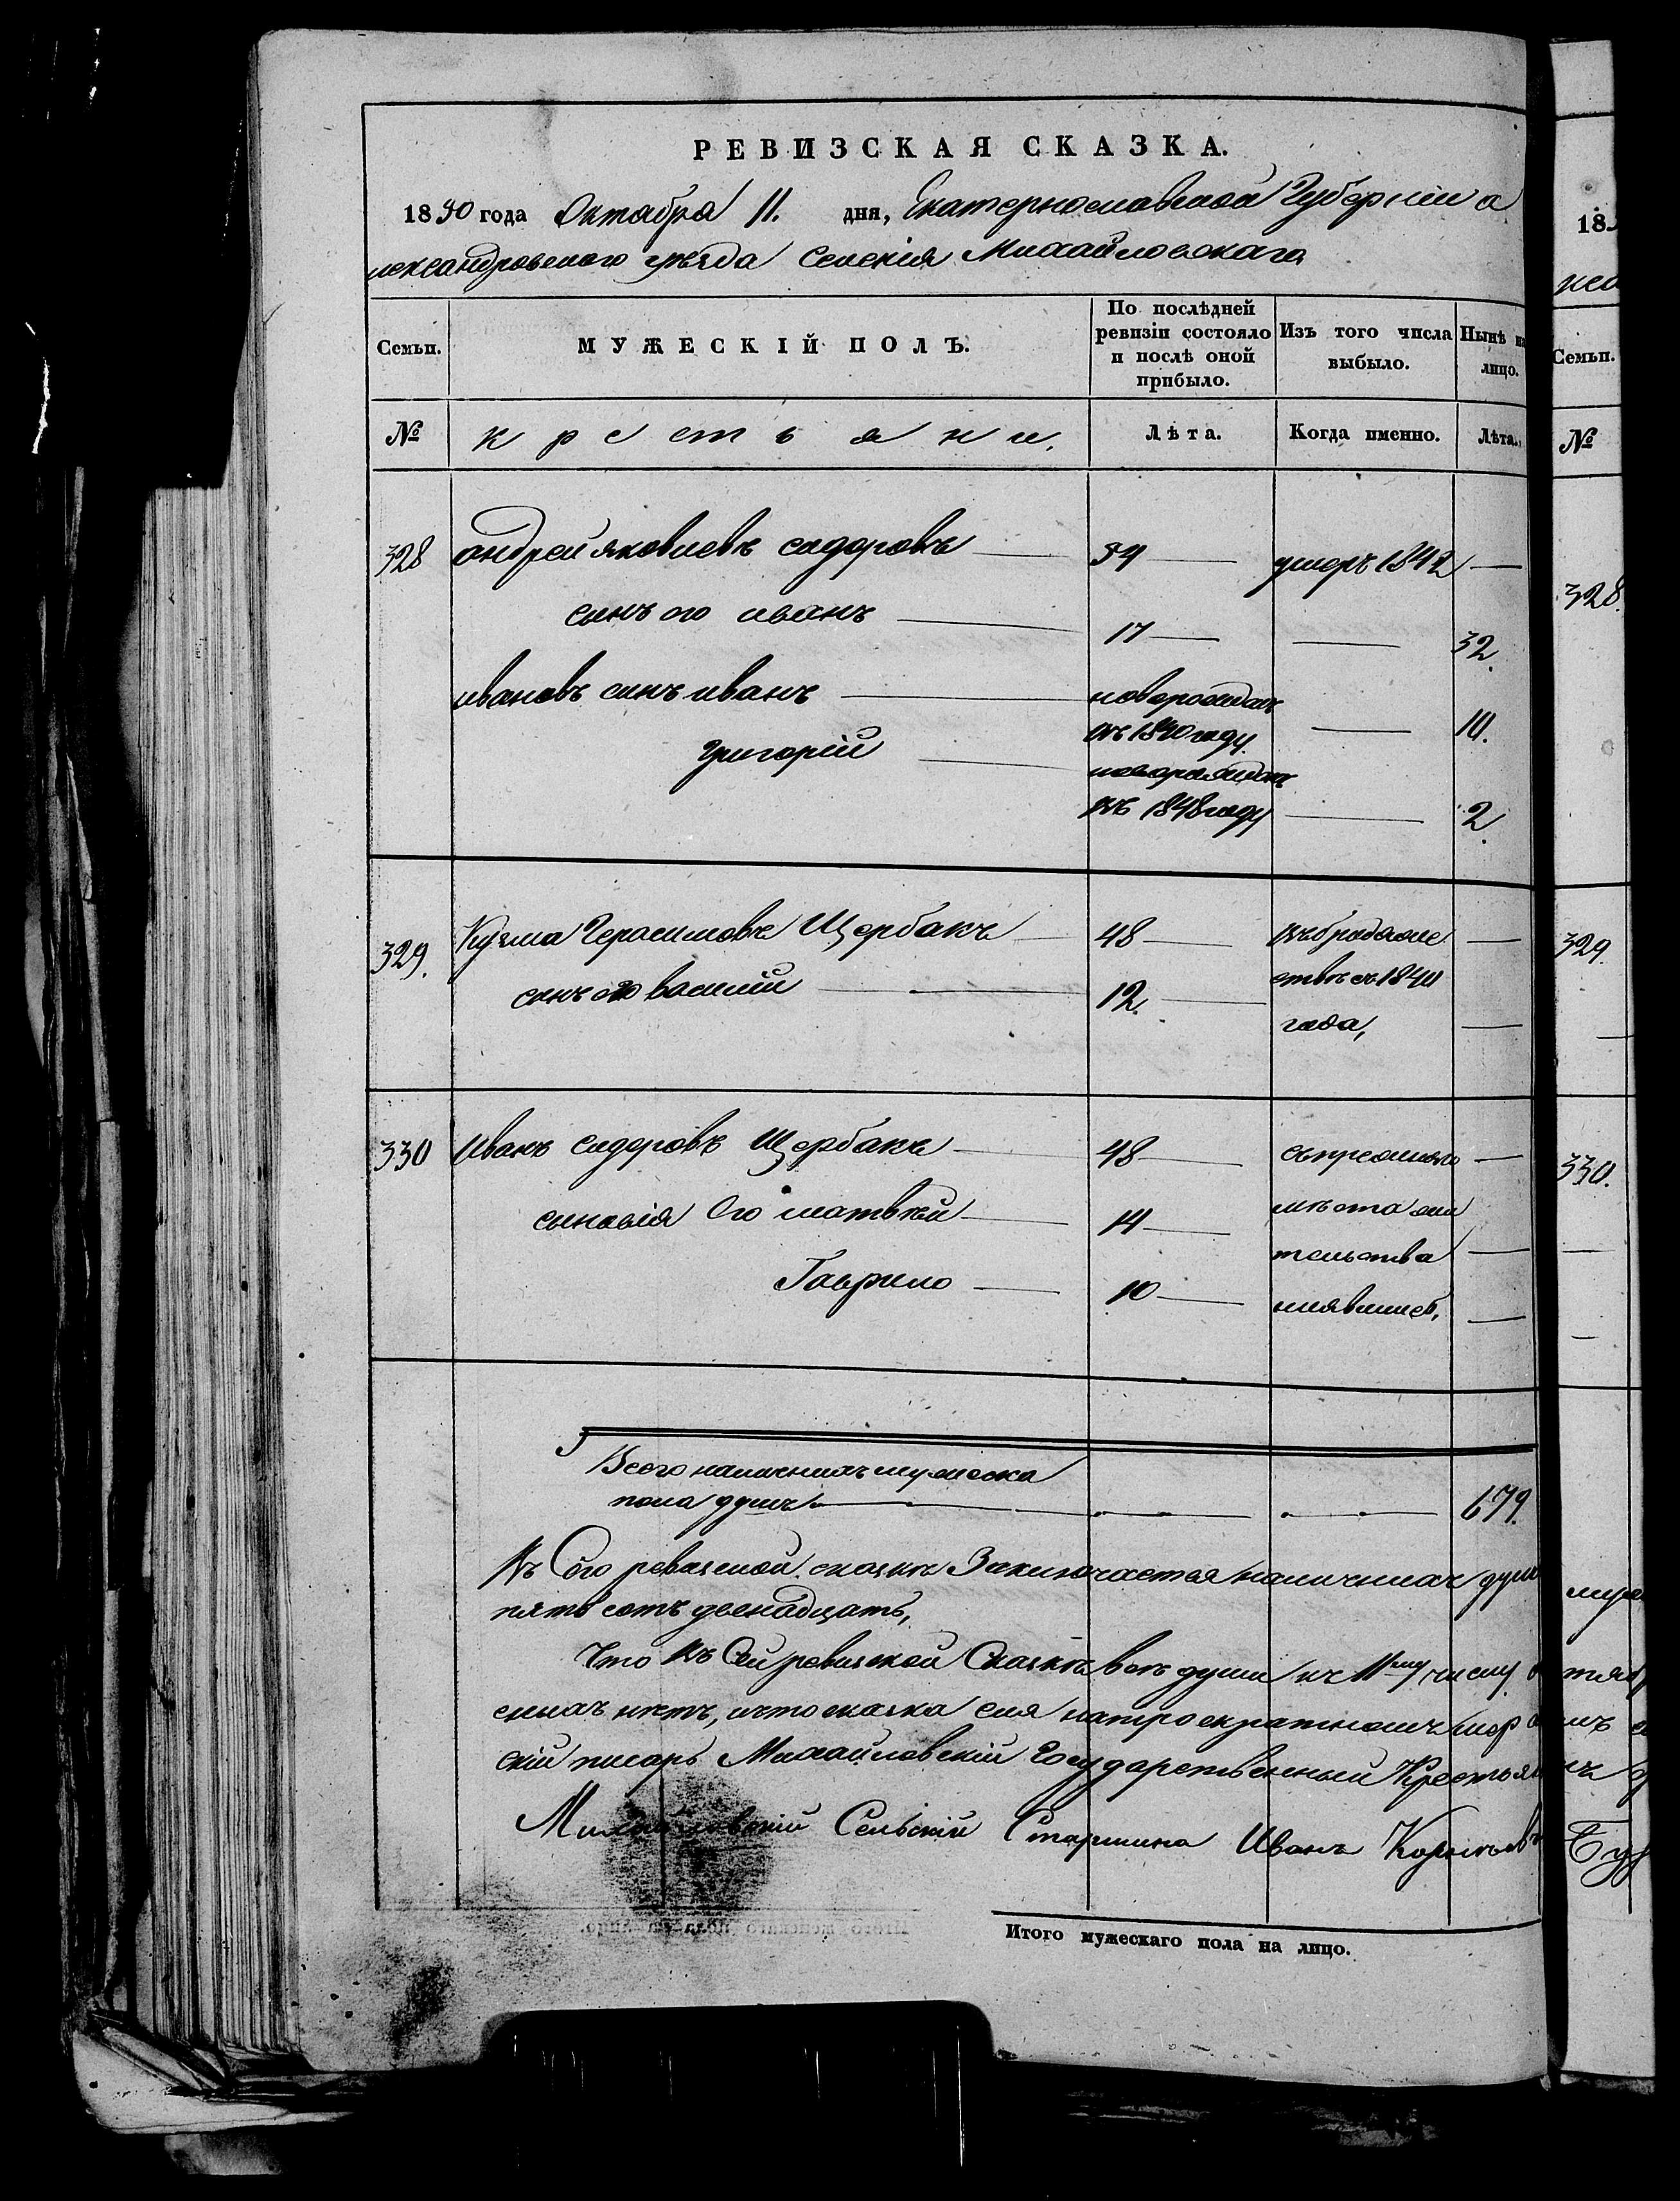 РЕВИЗСКАЯ СКАЗКА.
1850 года Октября 11. дня, Екатеринославской Губерніи а
лександровского уѣзда Селенія Михайловскаго
Семьи. МУЖЕСКІЙ ПОЛЪ. По послѣдней ревизіи состояло и послѣ оной прибыло. Изъ того числа выбыло. Нынѣ на лицо.
№ крестьяни, Лѣта. Когда именно. Лѣта.
328 андрей яковлевъ сидоровъ 54 умеръ 1842
сынъ его иванъ 17 32.
ивановъ синъ иванъ новорожден
въ 1840 году 10.
григорій новорожден
въ 1848 году 2.
329. Кузма Герасимовъ Щербакъ 48 въ бродяже
сынъ его василій 12. ствѣ съ 1840
года,
330 Иванъ сидоровъ Щербакъ 48 съпрежняго
сыновія его матвѣй 14 мѣста жи
тельства
Гаврило 10 неявились,
Всего наличныхъ мужеска
пола душъ 679.
Въ Сего ревизской сказкѣ Заключается наличныхъ душ
пять сотъ двенадцать,
Что въ Сей ревизской Сказкѣ всѣ души къ 11му числу
нѣтъ, и что сказка сия
скій писарь Михайловскій Государственный Крестьян
Михайловскій Сельскій Старшина Иванъ
Итого мужескаго пола на лицо.
18
Семьи.
№
328.
329.
330.